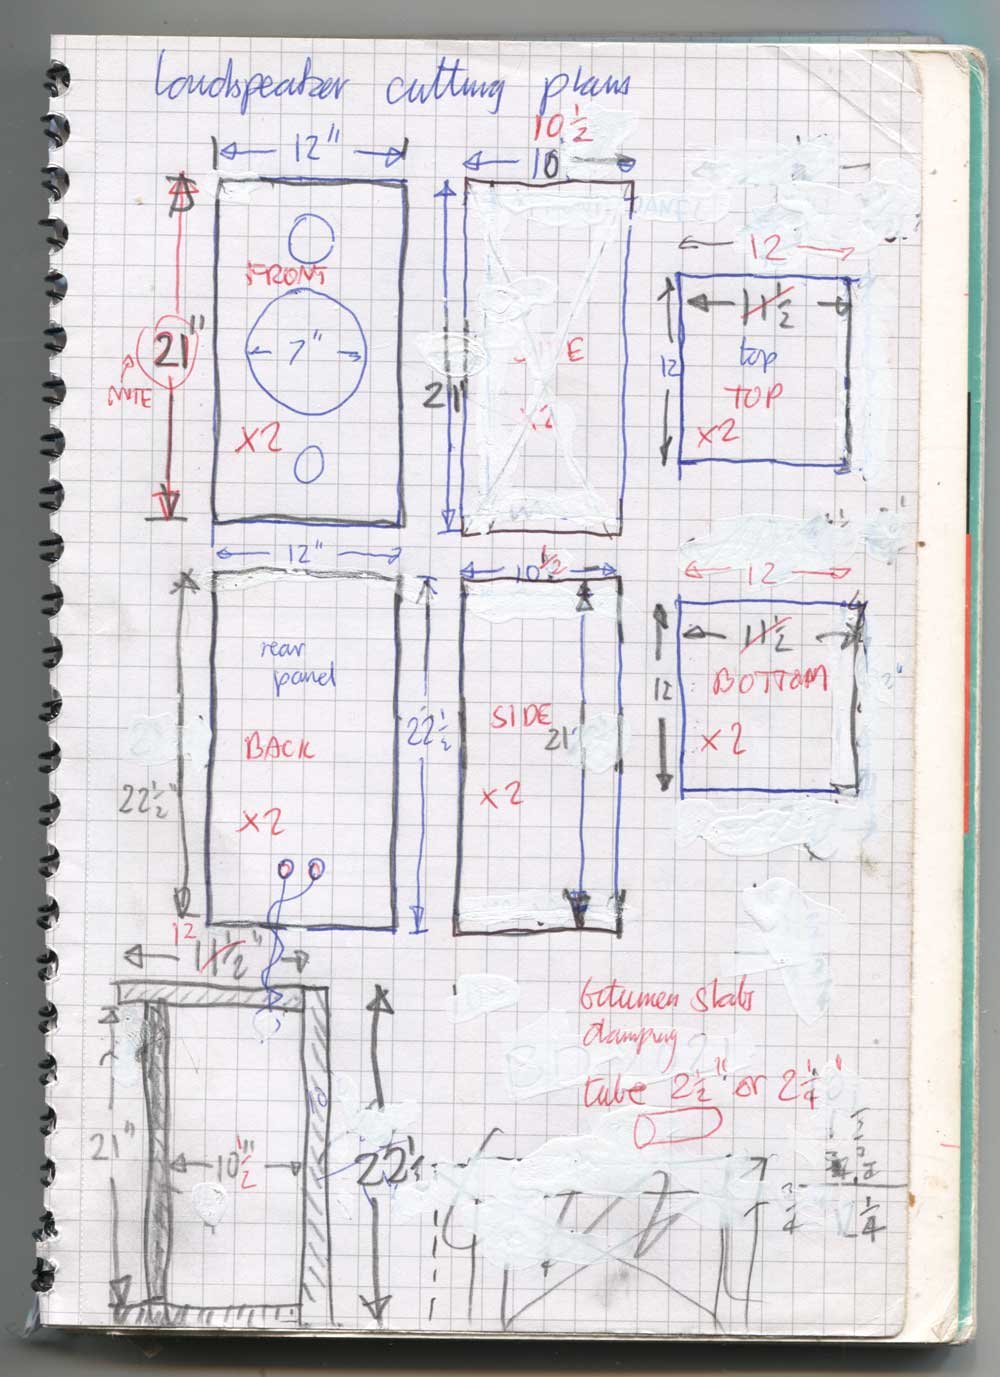 loudspeaker cutting plans
10 1/2
12"
10
12
FRONT
11 1/2
21"
NOTE
7"
SIDE
21"
12
top
TOP
x2
x2
x2
12"
10 1/2
12
11 1/2
rear
panel
BACK
22 1/2"
22 1/2
SIDE
21"
12
BOTTOM
x2
x2
x2
12
11 1/2"
bitumen slabs
damping
tube 2 1/2" or 2 1/4"
21"
10 1/2"
10
22 1/2
3/4
1/4